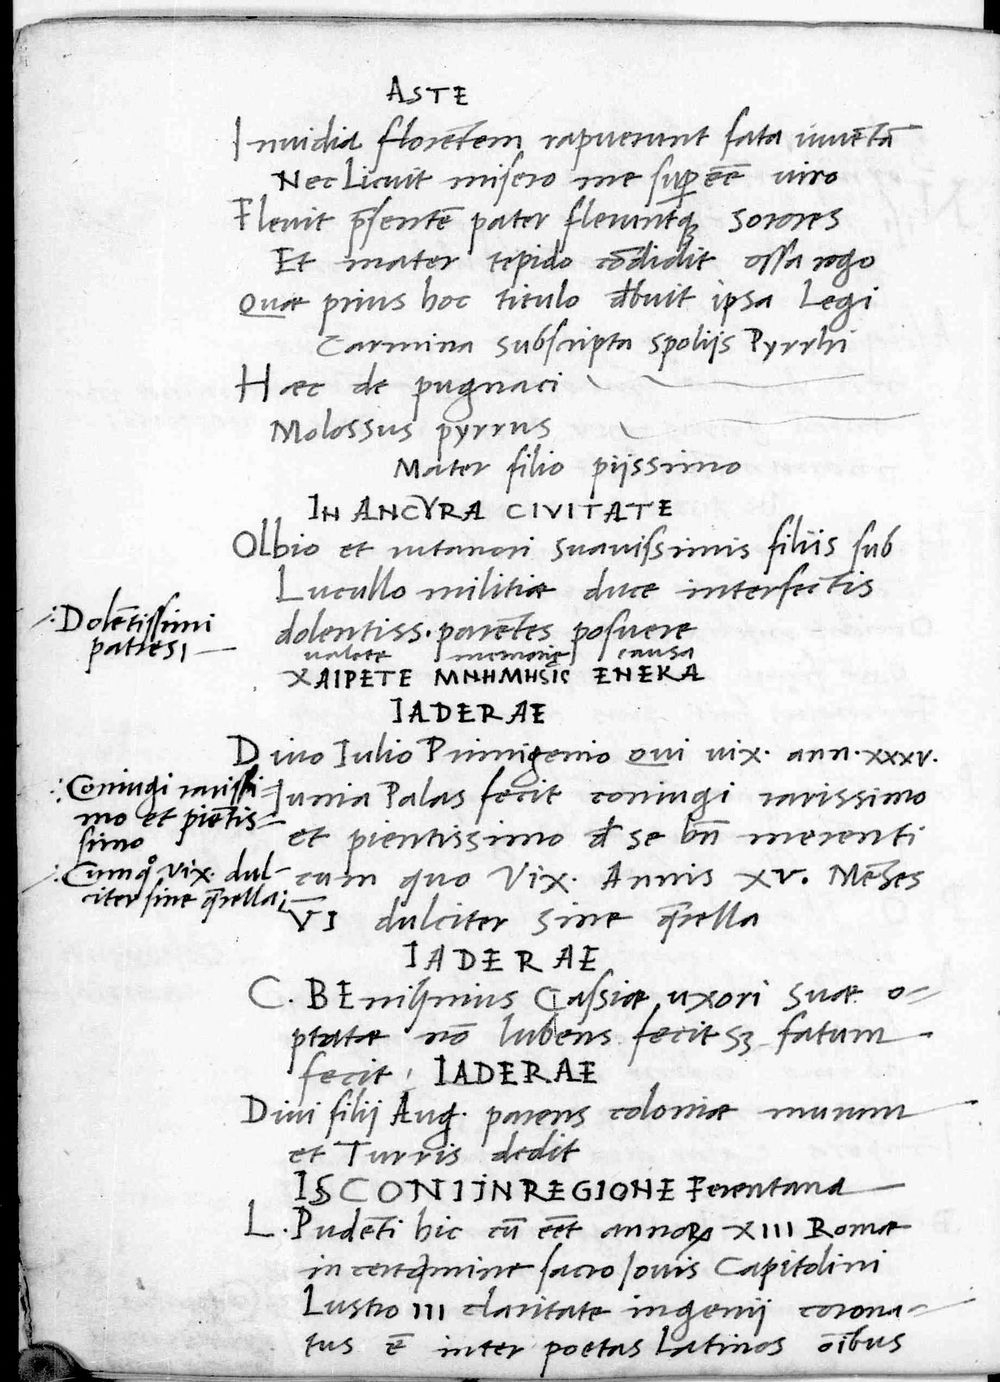 ASTE
Inuidia florētem rapuerunt fata iuuētā
Nec Licuit misero me sup̄ eē͞ viro
Fleuit p̄sentē pater fleruntq; sorores
Et mater tepido cōdidit ossa rogo
Quæ prius hoc titulo dbuit ipsa Legi
Carmina subscripta spolijs Pyrrhi
Hæc de pugnaci
Molossus pyrrus
Mater filio pijssimo
IN ANCYRA CIVITATE
Olbio et nitanori suauissimis filiis sub
Lucullo militiæ duce interfectis
dolentiss. parētes posuere
valete memorię causa
XAIPETE MNHMHSIC ENEKA
IADERAE
Diuo Iulio Primigenio qui uix. ann. xxxv.
Iunia Palas fecit coniugi rarissimo
et pientissimo d se bn̄ merenti
cum quo Vix. Annis XV. Mēses
VI dulciter sine q̄rella
Dolētissimi
patres
Coniugi rarissi=
mo et piētis=
simo
Cumqº vix. dul-
citer sine q̄rella
IADERAE
C. BEnignius Cassiæ uxori suæ o=
ptatæ nō lubens fecit sꝫ fatum
fecit IADERAE
Diui filij Aug. parens coloniæ murum
et Turris dedit
ISCONI IN REGIONE Ferentana
L. Pudēti hic cū eēt annoꝝ XIII Romæ
in certamine sacro Iouis Capitolini
Lustro III claritate ingenij corona=
tus ē inter poetas Latinos oībus